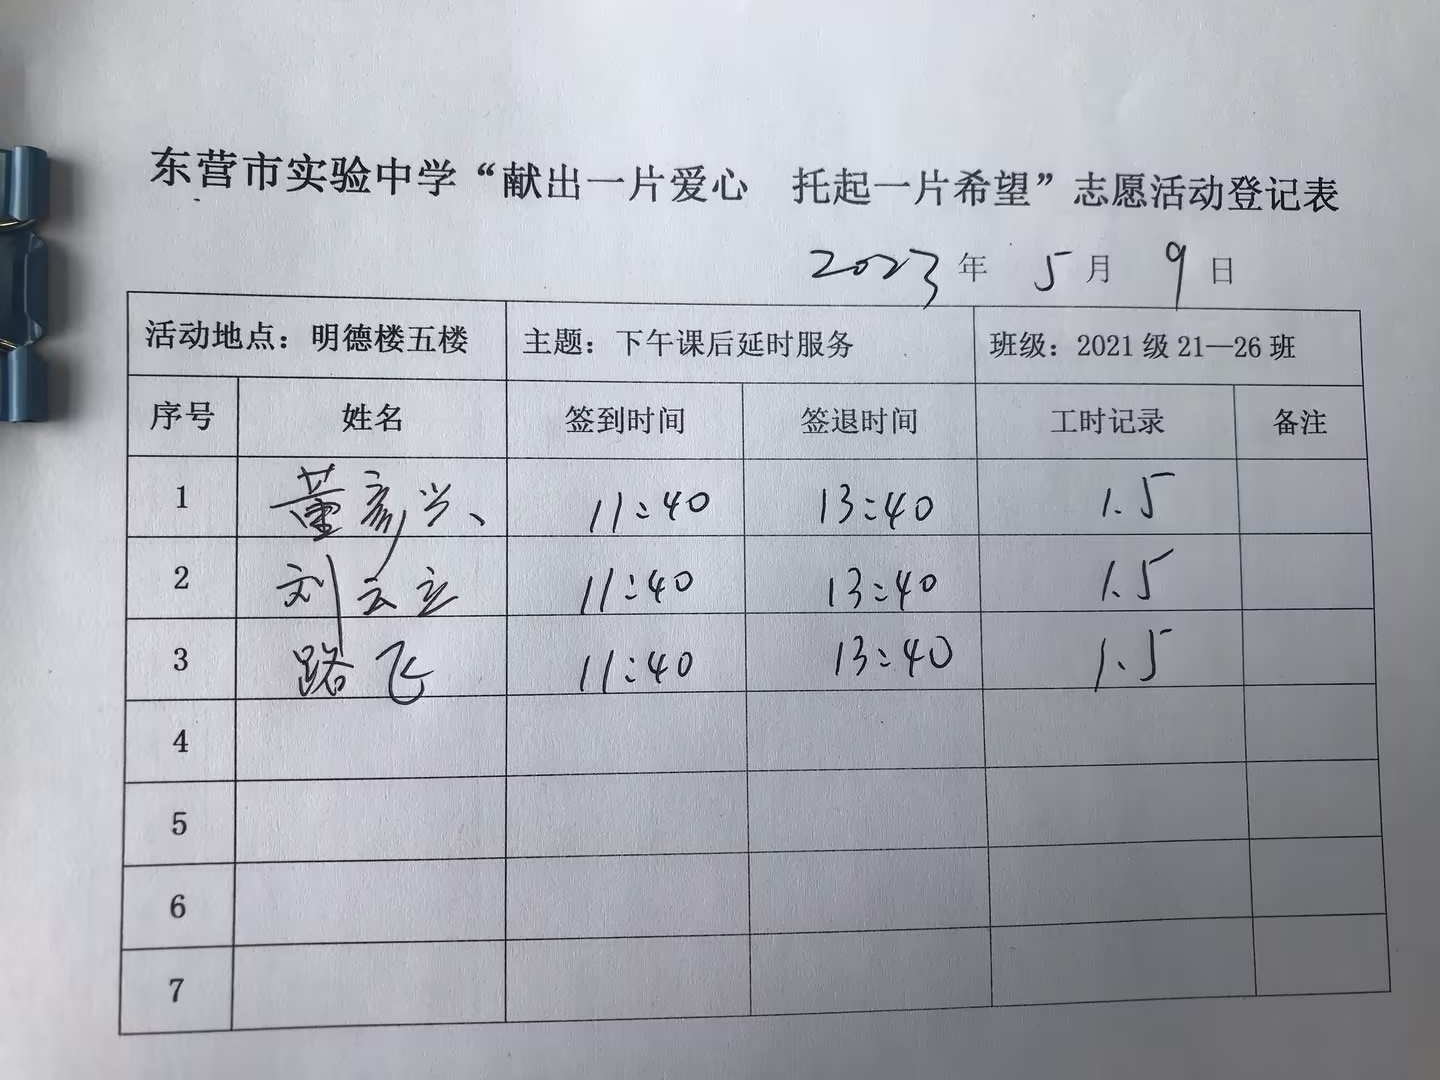 东营市实验中学“献出一片爱心 托起一片希望”志愿活动登记表
2023年 5月 9日
活动地点：明德楼五楼 主题：下午课后延时服务 班级：2021级21—26班
序号 姓名 签到时间 签退时间 工时记录 备注
1 董彦兴 11:40 13:40 1.5
2 刘云立 11:40 13:40 1.5
3 路飞 11:40 13:40 1.5
4
5
6
7